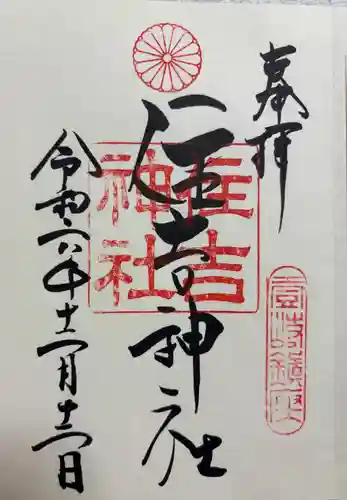 奉拝
壹岐鎮座
住吉神社
住吉
神社
令和六年十二月十二日